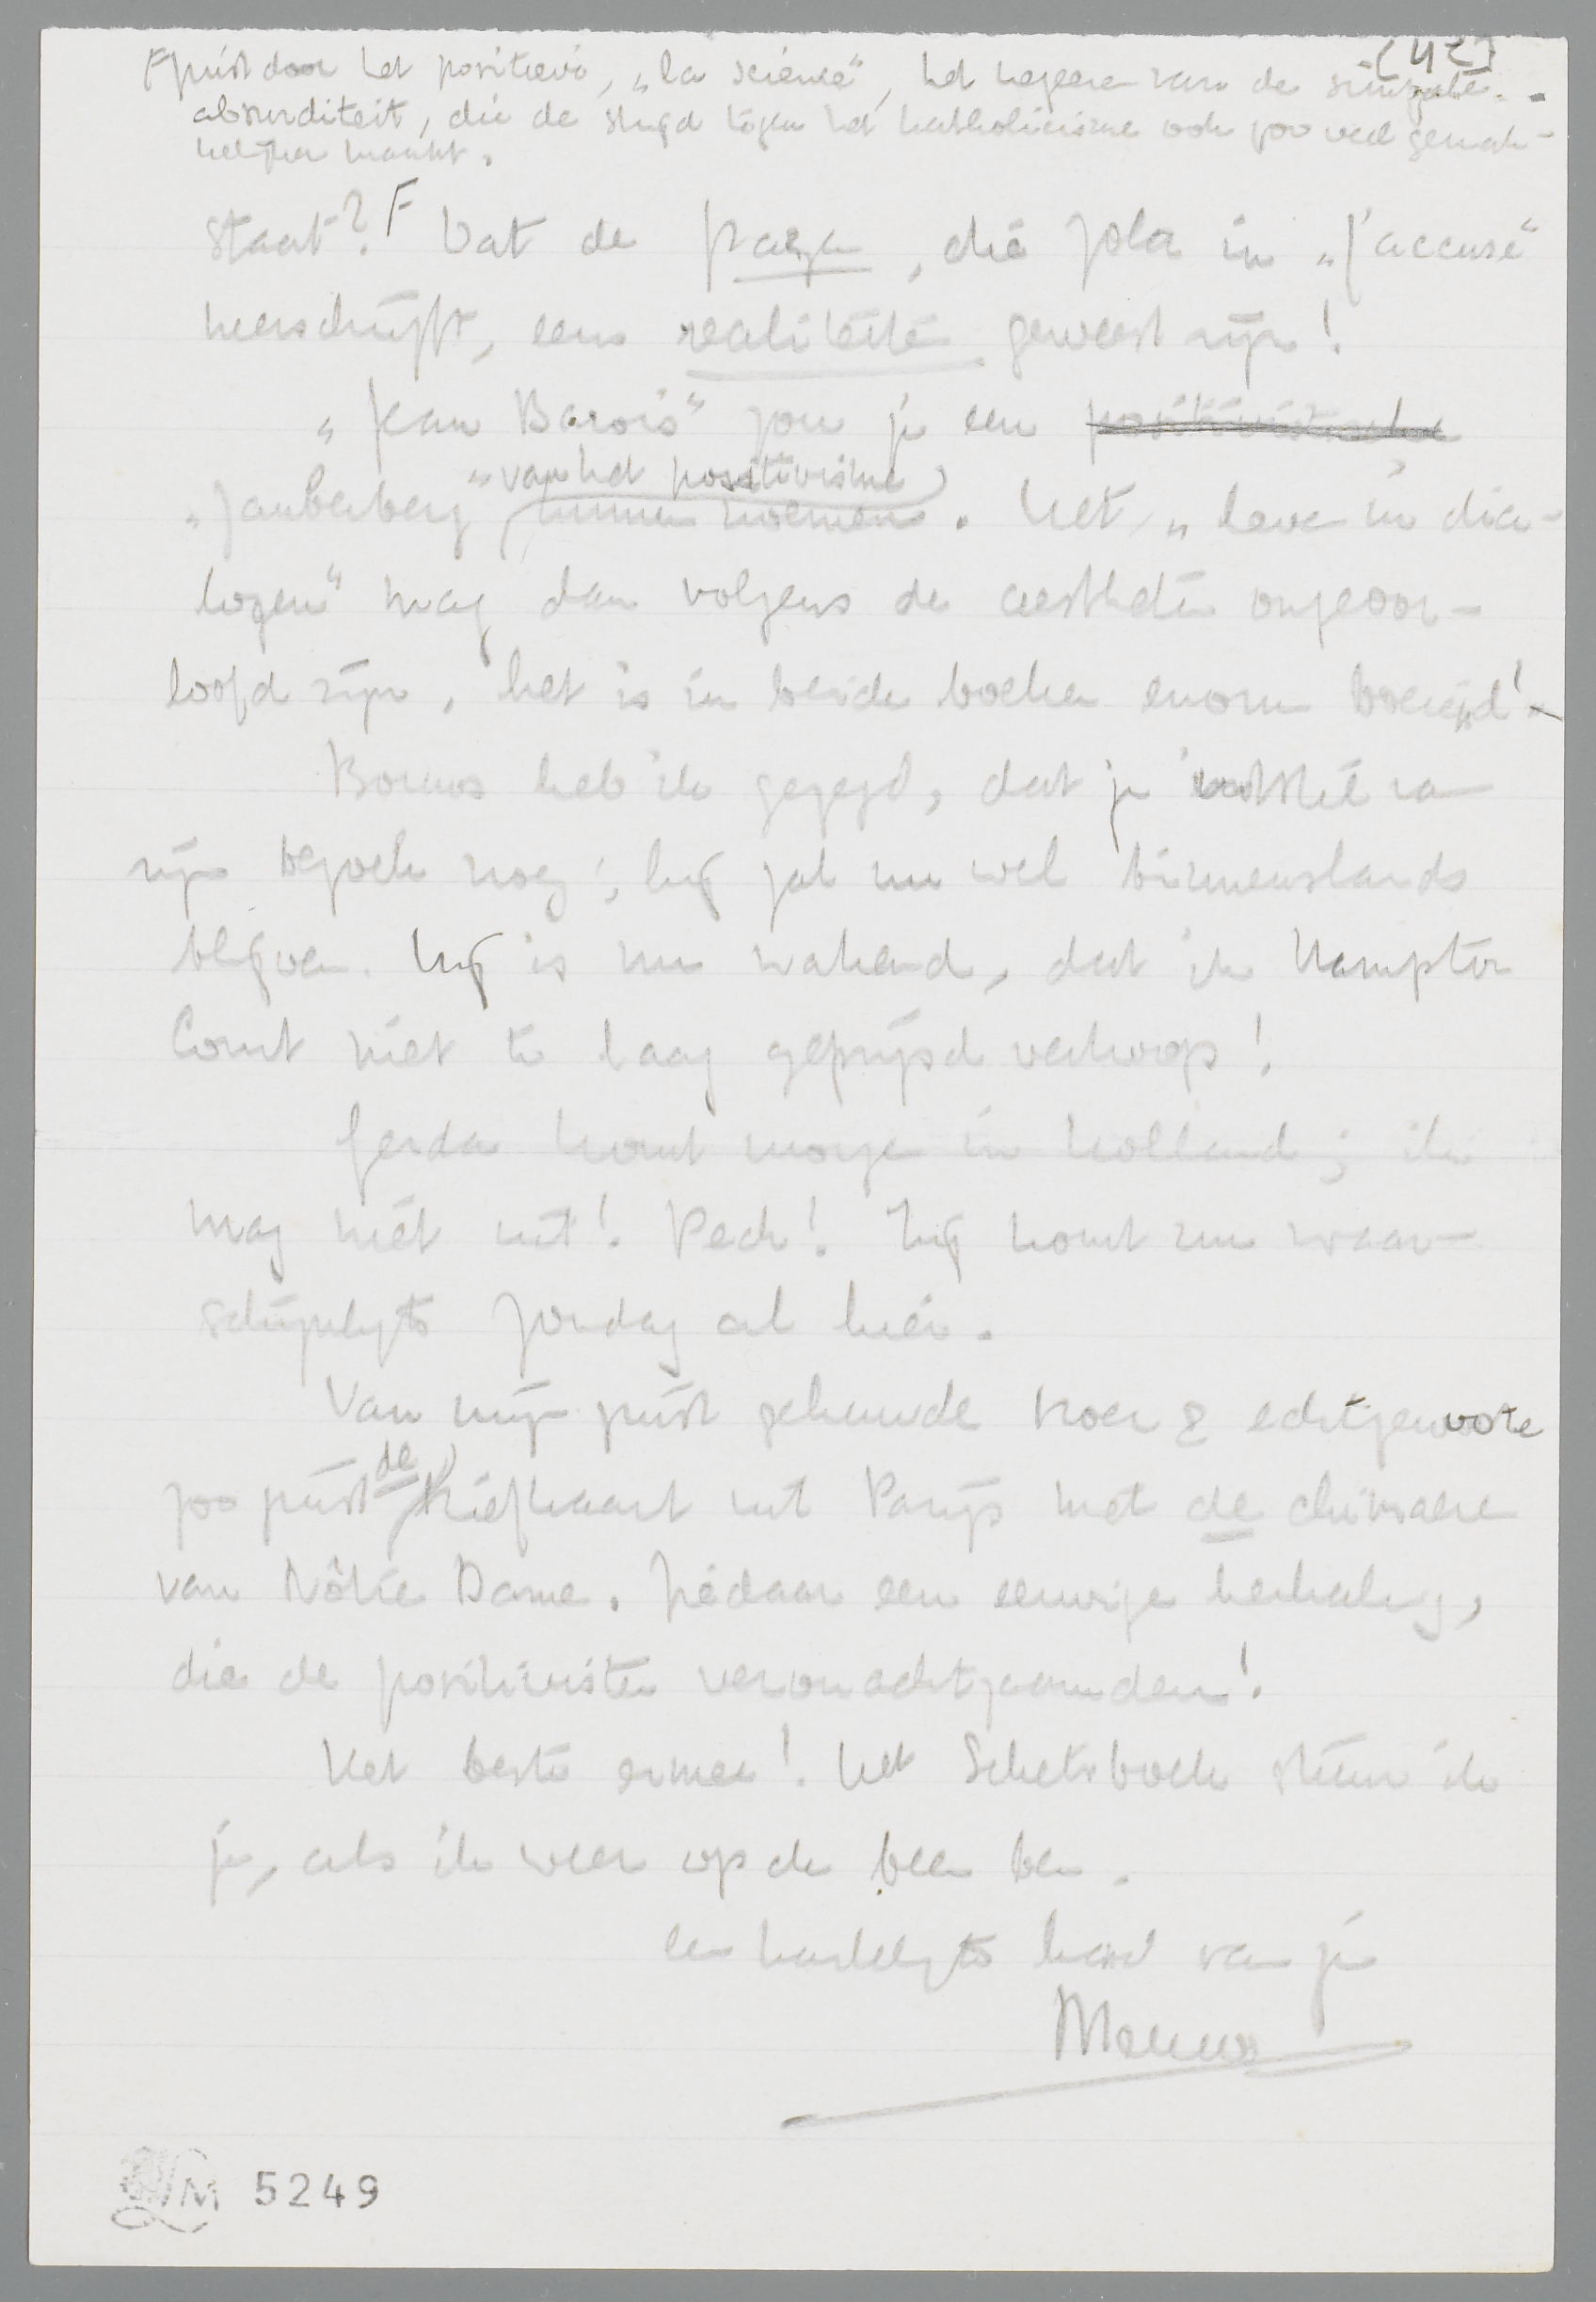 [42]
F juist door het positieve, „la science", het negeeren van de simpele
absurditeit, die de strijd tegen het katholicisme ook zoo veel gemak-
kelijker maakt.
staat? F Dat de frazen, die Zola in „J'accuse"
neerschrijft, eens realiteiten geweest zijn!
„Jean Barois" zou je een positivistische
„Zauberberg" van het positivisme kunnen noemen. Het „leven in dia-
logen" mag dan volgens de aestheten ongeoor-
loofd zijn, het is in beide boeken enorm boeiend!
Bouws heb ik gezegd, dat je van
zijn bezoek nog; hij zal nu wel binnenslands
blijven. Hij is nu wakend, dat ik Hampton
Court niet te laag geprijsd verkoop!
Gerda komt morgen in Holland; ik
mag niet uit! Pech! Zij komt nu waar-
schijnlijk Zondag al hier.
Van mijn juist gehuwde broer & echtgenoote
zoo juist de briefkaart uit Parijs met de chimaere
van Nôtre Dame. Ziedaar een eeuwige herhaling,
die de positivisten veronachtzaamden!
Het beste ermee! Het Schetsboek stuur ik
je, als ik weer op de been ben.
een hartelijke hand van je
Menno
LM 5249